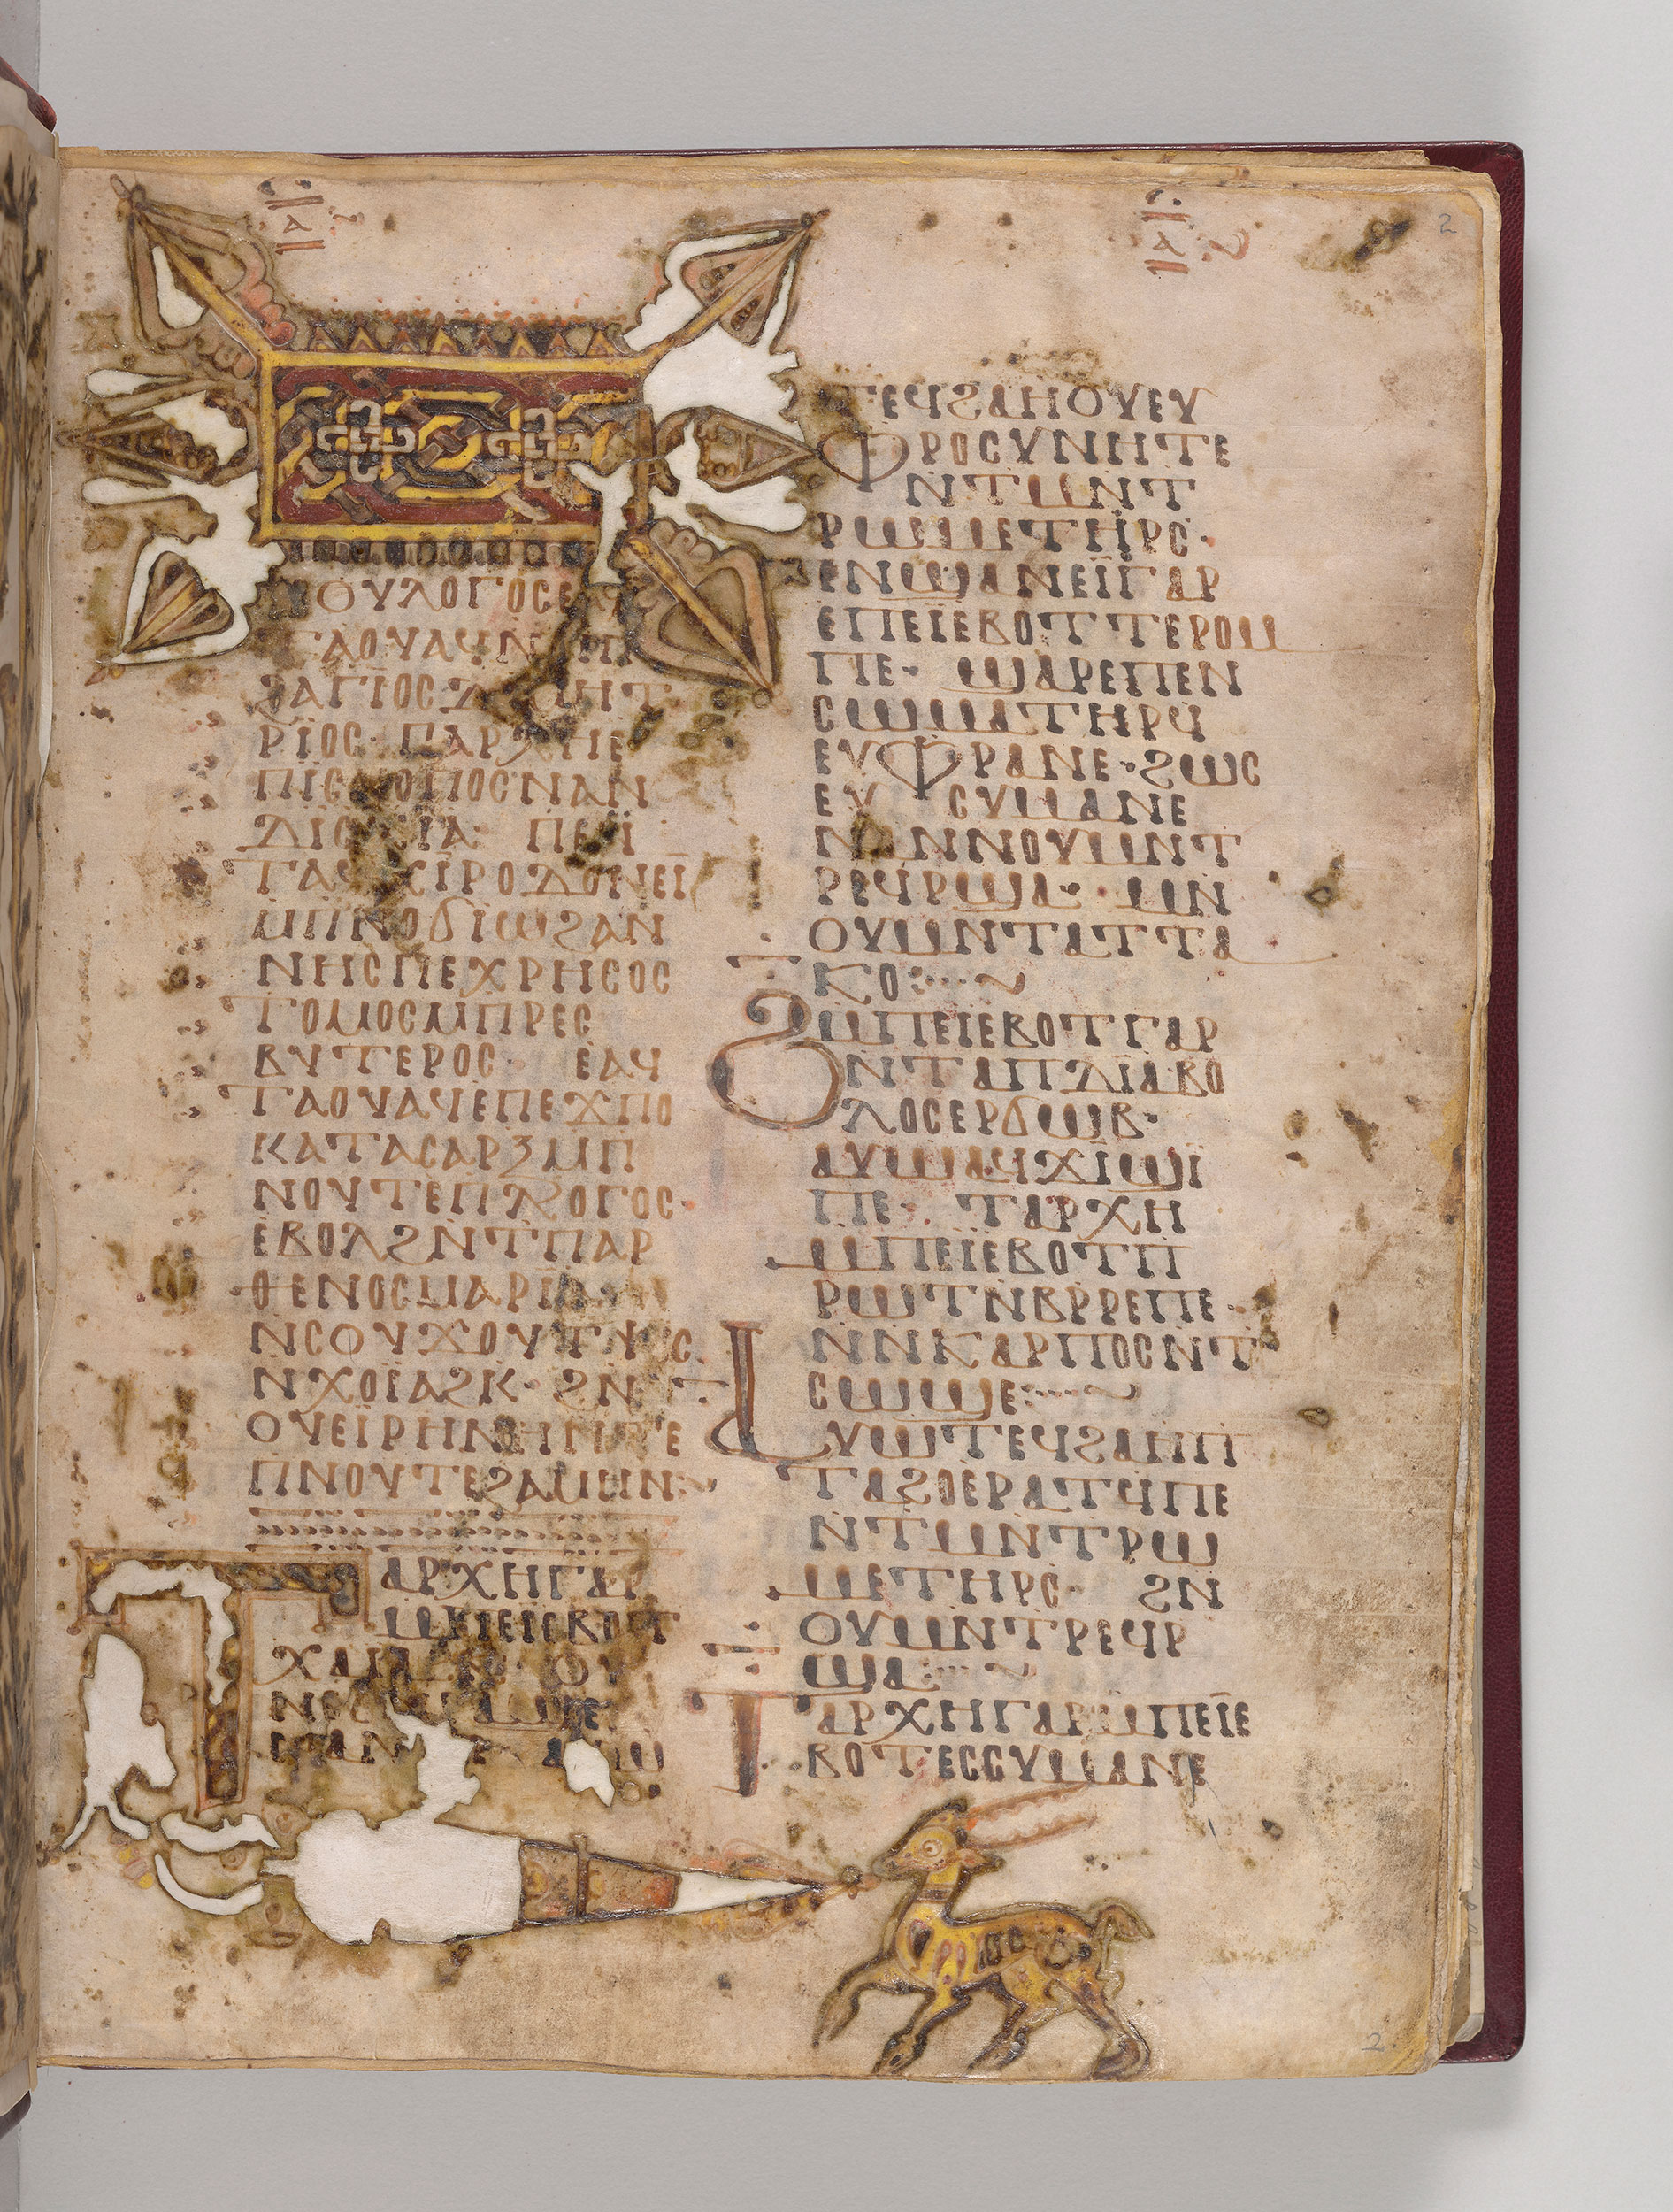 ⲁ
ⲁ
2
ⲛⲟⲩⲗⲟⲅⲟⲥⲉ
ⲧⲁⲟⲩⲁϥⲛ̅
ϩⲁⲅⲓⲟⲥ
ⲣⲓⲟⲥ· ⲡⲁⲣⲭⲏⲉ
ⲡⲓⲥⲕⲟⲡⲟⲥⲛⲁⲛ
ⲡⲉⲛ̅
ⲧⲁⲩⲭⲓⲣⲟⲇⲟⲛⲉⲓ
ⲙⲡⲛⲟϭⲓⲱϩⲁⲛ
ⲛⲏⲥⲡⲉⲭⲣⲏⲥⲟⲥ
ⲧⲟⲙⲟⲥⲙⲡⲣⲉⲥ
ⲃⲩⲧⲉⲣⲟⲥ· ⲉⲁϥ
ⲧⲁⲟⲩⲁϥⲉⲡⲉϫⲡⲟ
ⲕⲁⲧⲁⲥⲁⲣⲝⲙⲡ
ⲛⲟⲩⲧⲉⲡⲗⲟⲅⲟⲥ·
ⲉⲃⲟⲗϩⲛⲧⲡⲁⲣ
ⲑⲉⲛⲟⲥⲙⲁⲣⲓⲁ·
ⲛⲥⲟⲩϫⲟⲩⲧⲯⲥ
ⲛⲭⲟⲓⲁϩⲕ· ϩⲛ
ⲟⲩⲉⲓⲣⲏⲛⲏⲛⲧⲉ
ⲡⲛⲟⲩⲧⲉϩⲁⲙⲏⲛ
ⲧⲁⲣⲭⲏⲅⲁⲣ
ⲙⲡⲉⲓⲉⲃⲟⲧ
ⲧⲉϥϩⲁⲏⲟⲩⲉⲩ
ⲫⲣⲟⲥⲩⲛⲏⲧⲉ
ⲛⲧⲙⲛⲧ
ⲣⲱⲙⲉⲧⲏⲣⲥ·
ⲉⲛϣⲁⲛⲉⲓⲅⲁⲣ
ⲉⲡⲉⲓⲉⲃⲟⲧⲧⲉⲣⲟⲙ
ⲡⲉ· ϣⲁⲣⲉⲡⲉⲛ
ⲥⲱⲙⲁⲧⲏⲣϥ
ⲉⲩⲫⲣⲁⲛⲉ·ϩⲱⲥ
ⲉⲩⲥⲩⲙⲁⲛⲉ
ⲛⲁⲛⲛⲟⲩⲙⲛⲧ
ⲣⲉϥⲣϣⲁ· ⲙⲛ
ⲟⲩⲙⲛⲧⲁⲧⲧⲁ
ⲕⲟ:···~
ϩⲙⲡⲉⲓⲉⲃⲟⲧⲅⲁⲣ
ⲛⲧⲁⲡⲇⲓⲁⲃⲟ
ⲗⲟⲥⲉⲣϭⲱⲃ·
ⲁⲩⲱⲁϥϫⲓϣⲓ
ⲡⲉ· ⲧⲁⲣⲭⲏ
ⲙⲡⲉⲓⲉⲃⲟⲧⲡ
ⲣⲱⲧⲛⲃⲣⲣⲉⲡⲉ·
ⲛⲛⲕⲁⲣⲡⲟⲥⲛⲧ
ⲥⲱϣⲉ:···~
ⲁⲩⲱⲧⲉϥϩⲁⲏⲡ
ⲧⲁϩⲟⲉⲣⲁⲧϥⲡⲉ
ⲛⲧⲙⲛⲧⲣⲱ
ⲙⲉⲧⲏⲣⲥ· ϩⲛ
ⲟⲩⲙⲛⲧⲣⲉϥⲣ
ϣⲁ:···~
ⲧⲁⲣⲭⲏⲅⲁⲣⲙⲡⲉⲓⲉ
ⲃⲟⲧⲉⲥⲥⲩⲙⲁⲛⲉ
2